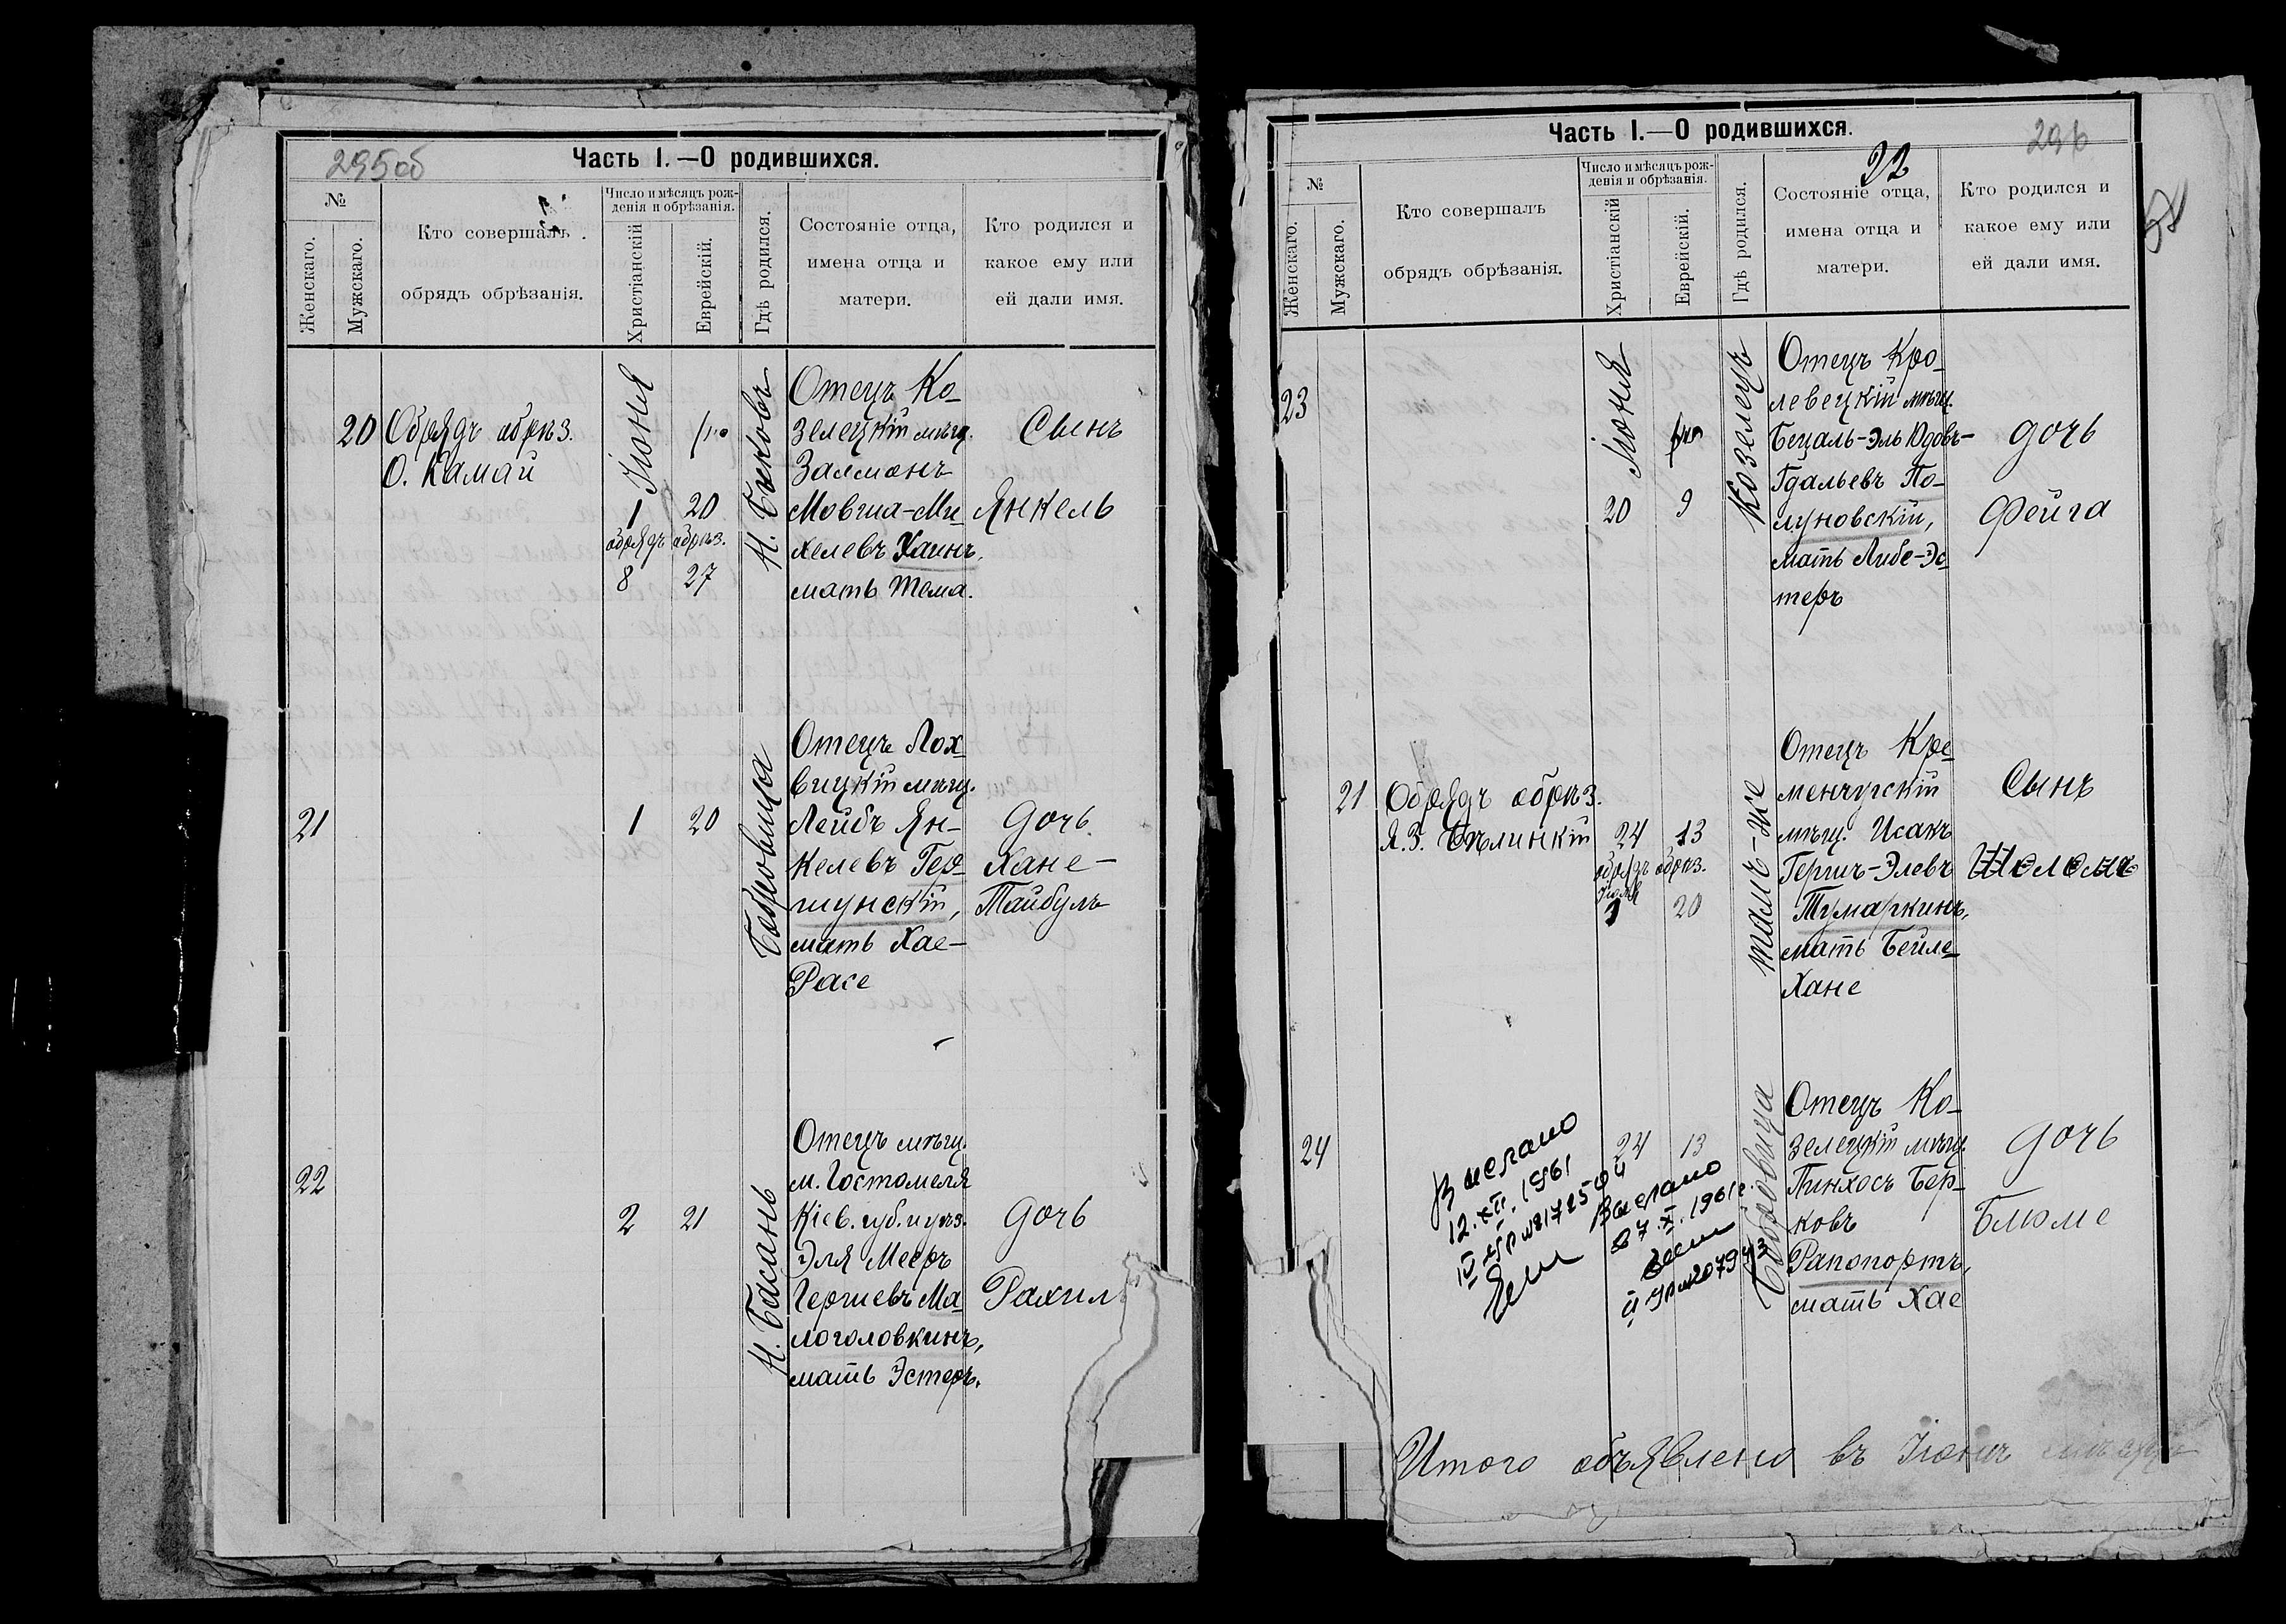 295об
Часть I.—О родившихся.
№
Женскаго.
Мужскаго.
Кто совершалъ
обрядъ обрѣзанія.
Число и мѣсяцъ рож-
денія и обрѣзанія.
Христіанскій
Еврейскій.
Гдѣ родился.
Состояніе отца,
имена отца и
матери.
Кто родился и
какое ему или
ей дали имя.
20
Обрядъ обрѣз.
О. Камай
Іюня
1
20
обрядъ обрѣз.
8
27
Н. Быковъ
Отецъ Ко-
зелецкій мѣщ.
Залманъ
Мовша-Ми-
хелевъ Хаинъ,
мать Тема.
Сынъ
Янкель
21
1
20
Бобровица
Отецъ Лох-
вицкій мѣщ.
Лейбъ Ян-
келевъ Гер-
шунскій,
мать Хае-
Расе
Дочь
Хане-
Тайбуль
22
2
21
Н. Басань
Отецъ мѣщ.
м. Гостомеля
Кіев. губ. и уѣз.
Эля Мееръ
Гершевъ Ма-
логоловкинъ,
мать Эстеръ.
Дочь
Рахил
296
Часть I.—О родившихся.
22
№
Женскаго.
Мужскаго.
Кто совершалъ
обрядъ обрѣзанія.
Число и мѣсяцъ рож-
денія и обрѣзанія.
Христіанскій
Еврейскій.
Гдѣ родился.
Состояніе отца,
имена отца и
матери.
Кто родился и
какое ему или
ей дали имя.
23
Іюня
20
9
Козелецъ
Отецъ Кро-
левецкій мѣщ.
Бецаль-Эль Юдовъ-
Гдальевъ По-
луновскій,
мать Либе-Эс-
теръ
Дочь
Фейга
21
Обрядъ обрѣз.
Я. З. Бѣлинкій
24
13
обрядъ обрѣз.
Іюля
1
20
тамъ-же
Отецъ Кре-
менчугскій
мѣщ. Исакъ
Гершъ-Элевъ
Тумаркинъ,
мать Бейле-
Хане
Сынъ
Шолома
24
24
13
Бобровица
Отецъ Ко-
зелецкій мѣщ.
Пинхосъ Бер-
ковъ
Рапопортъ,
мать Хае
Дочь
Блюме
Выслано
12.XII.1961
Выслано
27.X.1961г.
Итого объявлено въ Іюнѣ мѣсяцѣ